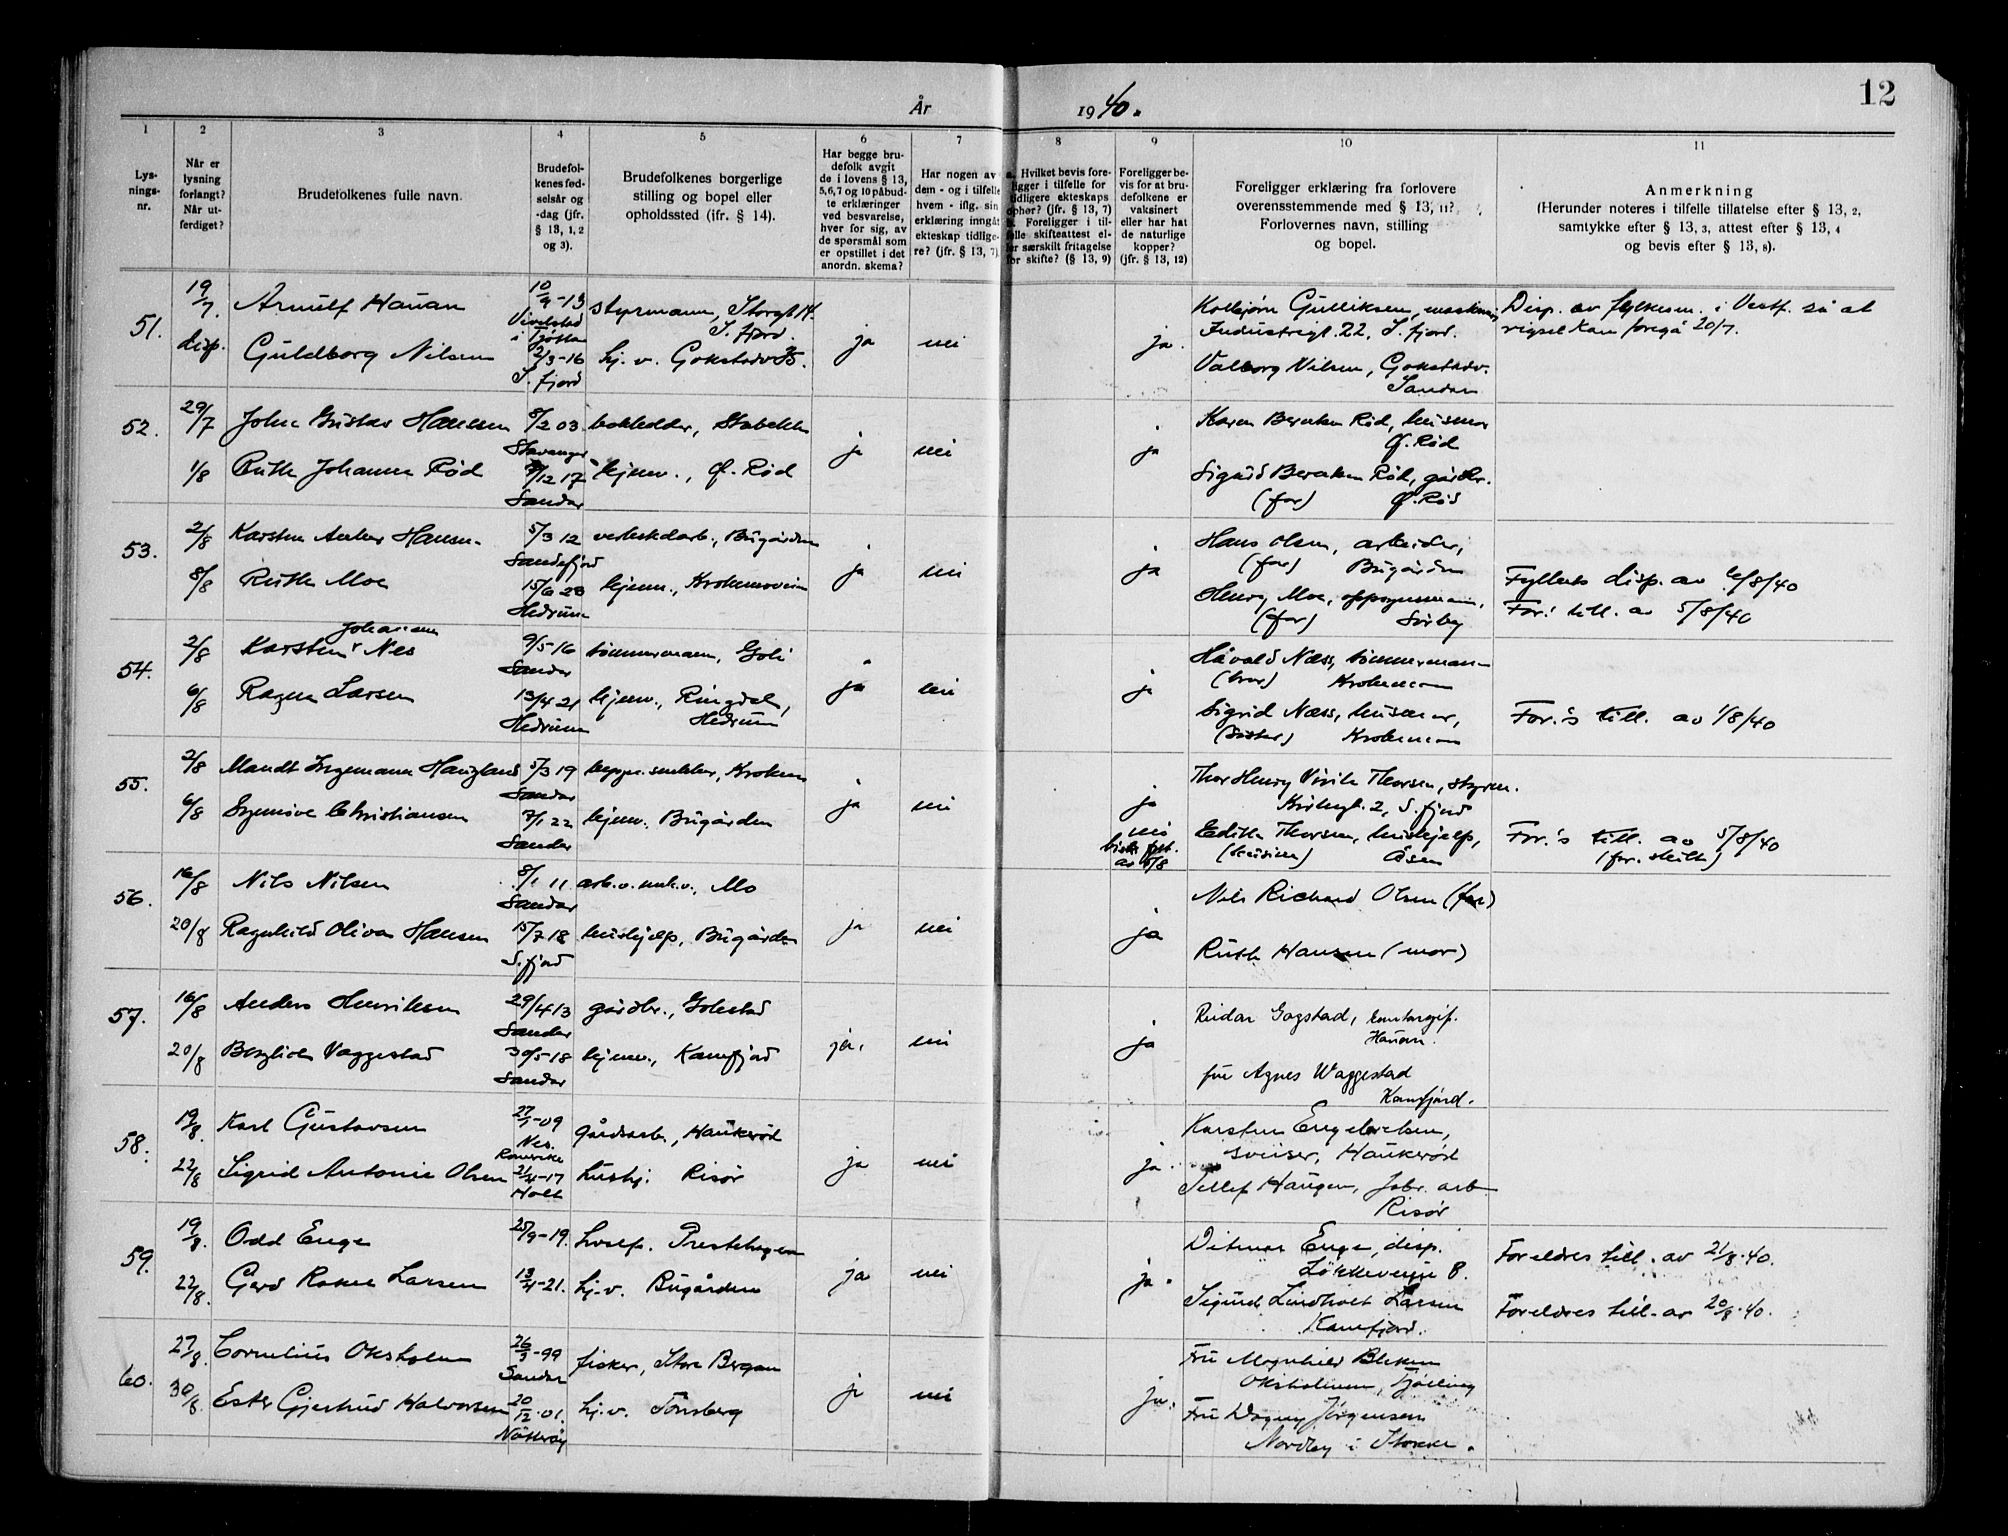 12
År 1940.
1 2 3 4 5 6 7 8 9 10 11
Lys-
nings-
nr.
Når er
lysning
forlangt?
Når ut-
ferdiget?
Brudefolkenes fulle navn.
Brudefol-
kenes fød-
selsår og
-dag (jfr.
§ 13, 1, 2
og 3).
Brudefolkenes borgerlige
stilling og bopel eller
opholdssted (ifr. § 14).
Har begge bru-
defolk avgit
de i lovens § 13,
5,6,7 og 10 påbud-
te erklæringer
ved besvarelse,
hver for sig, av
de spørsmål som
er opstillet i det
anordn. skema?
Har nogen av
dem - og i tilfelle
hvem - iflg. sin
erklæring inngåt
ekteskap tidlige-
re? (jfr. § 13, 7)
a. Hvilket bevis fore-
ligger i tilfelle for
tidligere ekteskaps
ophør? (jfr. § 13, 7)
b. Foreligger i til-
felle skifteattest el-
ler særskilt fritagelse
for skifte? (§ 13, 9)
Foreligger be-
vis for at bru-
defolkene er
vaksinert
eller har hat
de naturlige
kopper?
(jfr. § 13, 12)
Foreligger erklæring fra forlovere
overensstemmende med § 13, 11?
Forlovernes navn, stilling
og bopel.
Anmerkning
(Herunder noteres i tilfelle tillatelse efter § 13, 2,
samtykke efter § 13, 3, attest efter § 13, 4
og bevis efter § 13, 8).
51. 19/7. Arnulf Hauan 10/9-13 styrmann, Storgt 14. S. fjord. ja nei ja. Kolbjørn Gulliksen, Industrigt. 22, S. fjord. Disp. av fylkesm. i Vestf. så at
vigsel kan foregå 20/7.
disp. Guldborg Nilsen 2/3-16 S. fjord hj. v. Gokstadv 35. Valborg Nilsen, Gokstadv. Sandar
52. 29/7 John Gustav Hansen 8/2 03 Stavanger bokholder, Stabekk ja nei ja Karen Berntsen Rød, husmor Ø. Rød
1/8 Ruth Johanne Rød 7/12 17 Sandar hjemv., Ø. Rød Sigurd Berntsen Rød, gårdbr. (far) Ø. Rød
53. 2/8 Karsten Anker Hansen 5/3 12 Sandefjord verkstedarb., Bugården ja nei ja Hans Olsen, arbeider, (far) Bugården
8/8 Ruth Moe 15/6 23 Hedrum hjemv., Krokemoveien Henry Moe, oppsynsmann, (far) Sørby Fylkets disp. av 6/8/40
For.' till. av 5/8/40
54. 2/8 Karsten Johansen Nes 9/5-16 Sandar tømmermann, Goli ja nei ja Håvald Næss, tømmermann (bror) Krokemoen
6/8 Ragna Larsen 13/4 21 Hedrum hjemv., Ringdal, Hedrum Sigrid Næss, husmor, (søster) Krokemoen For.'s till. av 1/8/40
55. 2/8 Mandt Ingemann Haugland 5/3 19 Sandar Krokemo ja nei ja Thor Henry Thorsen, styrm. Kirkegt. 2, S. fjord
6/8 Synnøve Christiansen 7/1 22 Sandar hjemv. Bugården nei av 5/8 Edith Thorsen, hushjelp, (kusine) Åsen For.'s till. av 5/8/40
(for. skilt)
56. 16/8 Nils Nilsen 8/1 11 Sandar Mo ja nei ja Nils Richard Olsen (far)
20/8 Ragnhild Oliva Hansen 15/7 18 S. fjord hushjelp, Bugården Ruth Hansen (mor)
57. 16/8 Anders Henriksen 29/4 13 Sandar gårdbr., Gokstad ja. nei ja Reidar Gogstad, Hauan.
20/8 Bergliot Vaggestad 30/5-18 Sandar hjemv., Kamfjord fru Agnes Waggestad Kamfjord.
58. 19/8. Karl Gustavsen 27/1-09 Nes. Romerike gårdsarb., Haukerød ja nei ja Karsten Engebretsen, sveiser, Haukerød
22/8 Sigrid Antonie Olsen 21/4-17 Holt hushj. Risør Tellef Haugen, fabr. arb Risør
59. 19/8. Odd Enge 25/9-19. Prestehagen ja nei ja. Ditmar Enge, disp. Løkkevegje 8. Foreldres till. av 21/8.40.
22/8. Gerd Larsen 13/4-21. hj.v. Bugården Sigurd Lindholt Larsen Kamfjord. Foreldres till. av 20/8.40.
60. 27/8. Cornelius Oksholm 26/3-99 Sandar fisker, Store Bergan ja nei ja. Fru Magnhild Bleken Oksholmen, Tjølling
30/8. Ester Gjertrud Halvorsen 20/12-01. Nøtterøy hj.v. Tønsberg Fru Dagny Jørgensen Nordby i Stokke.